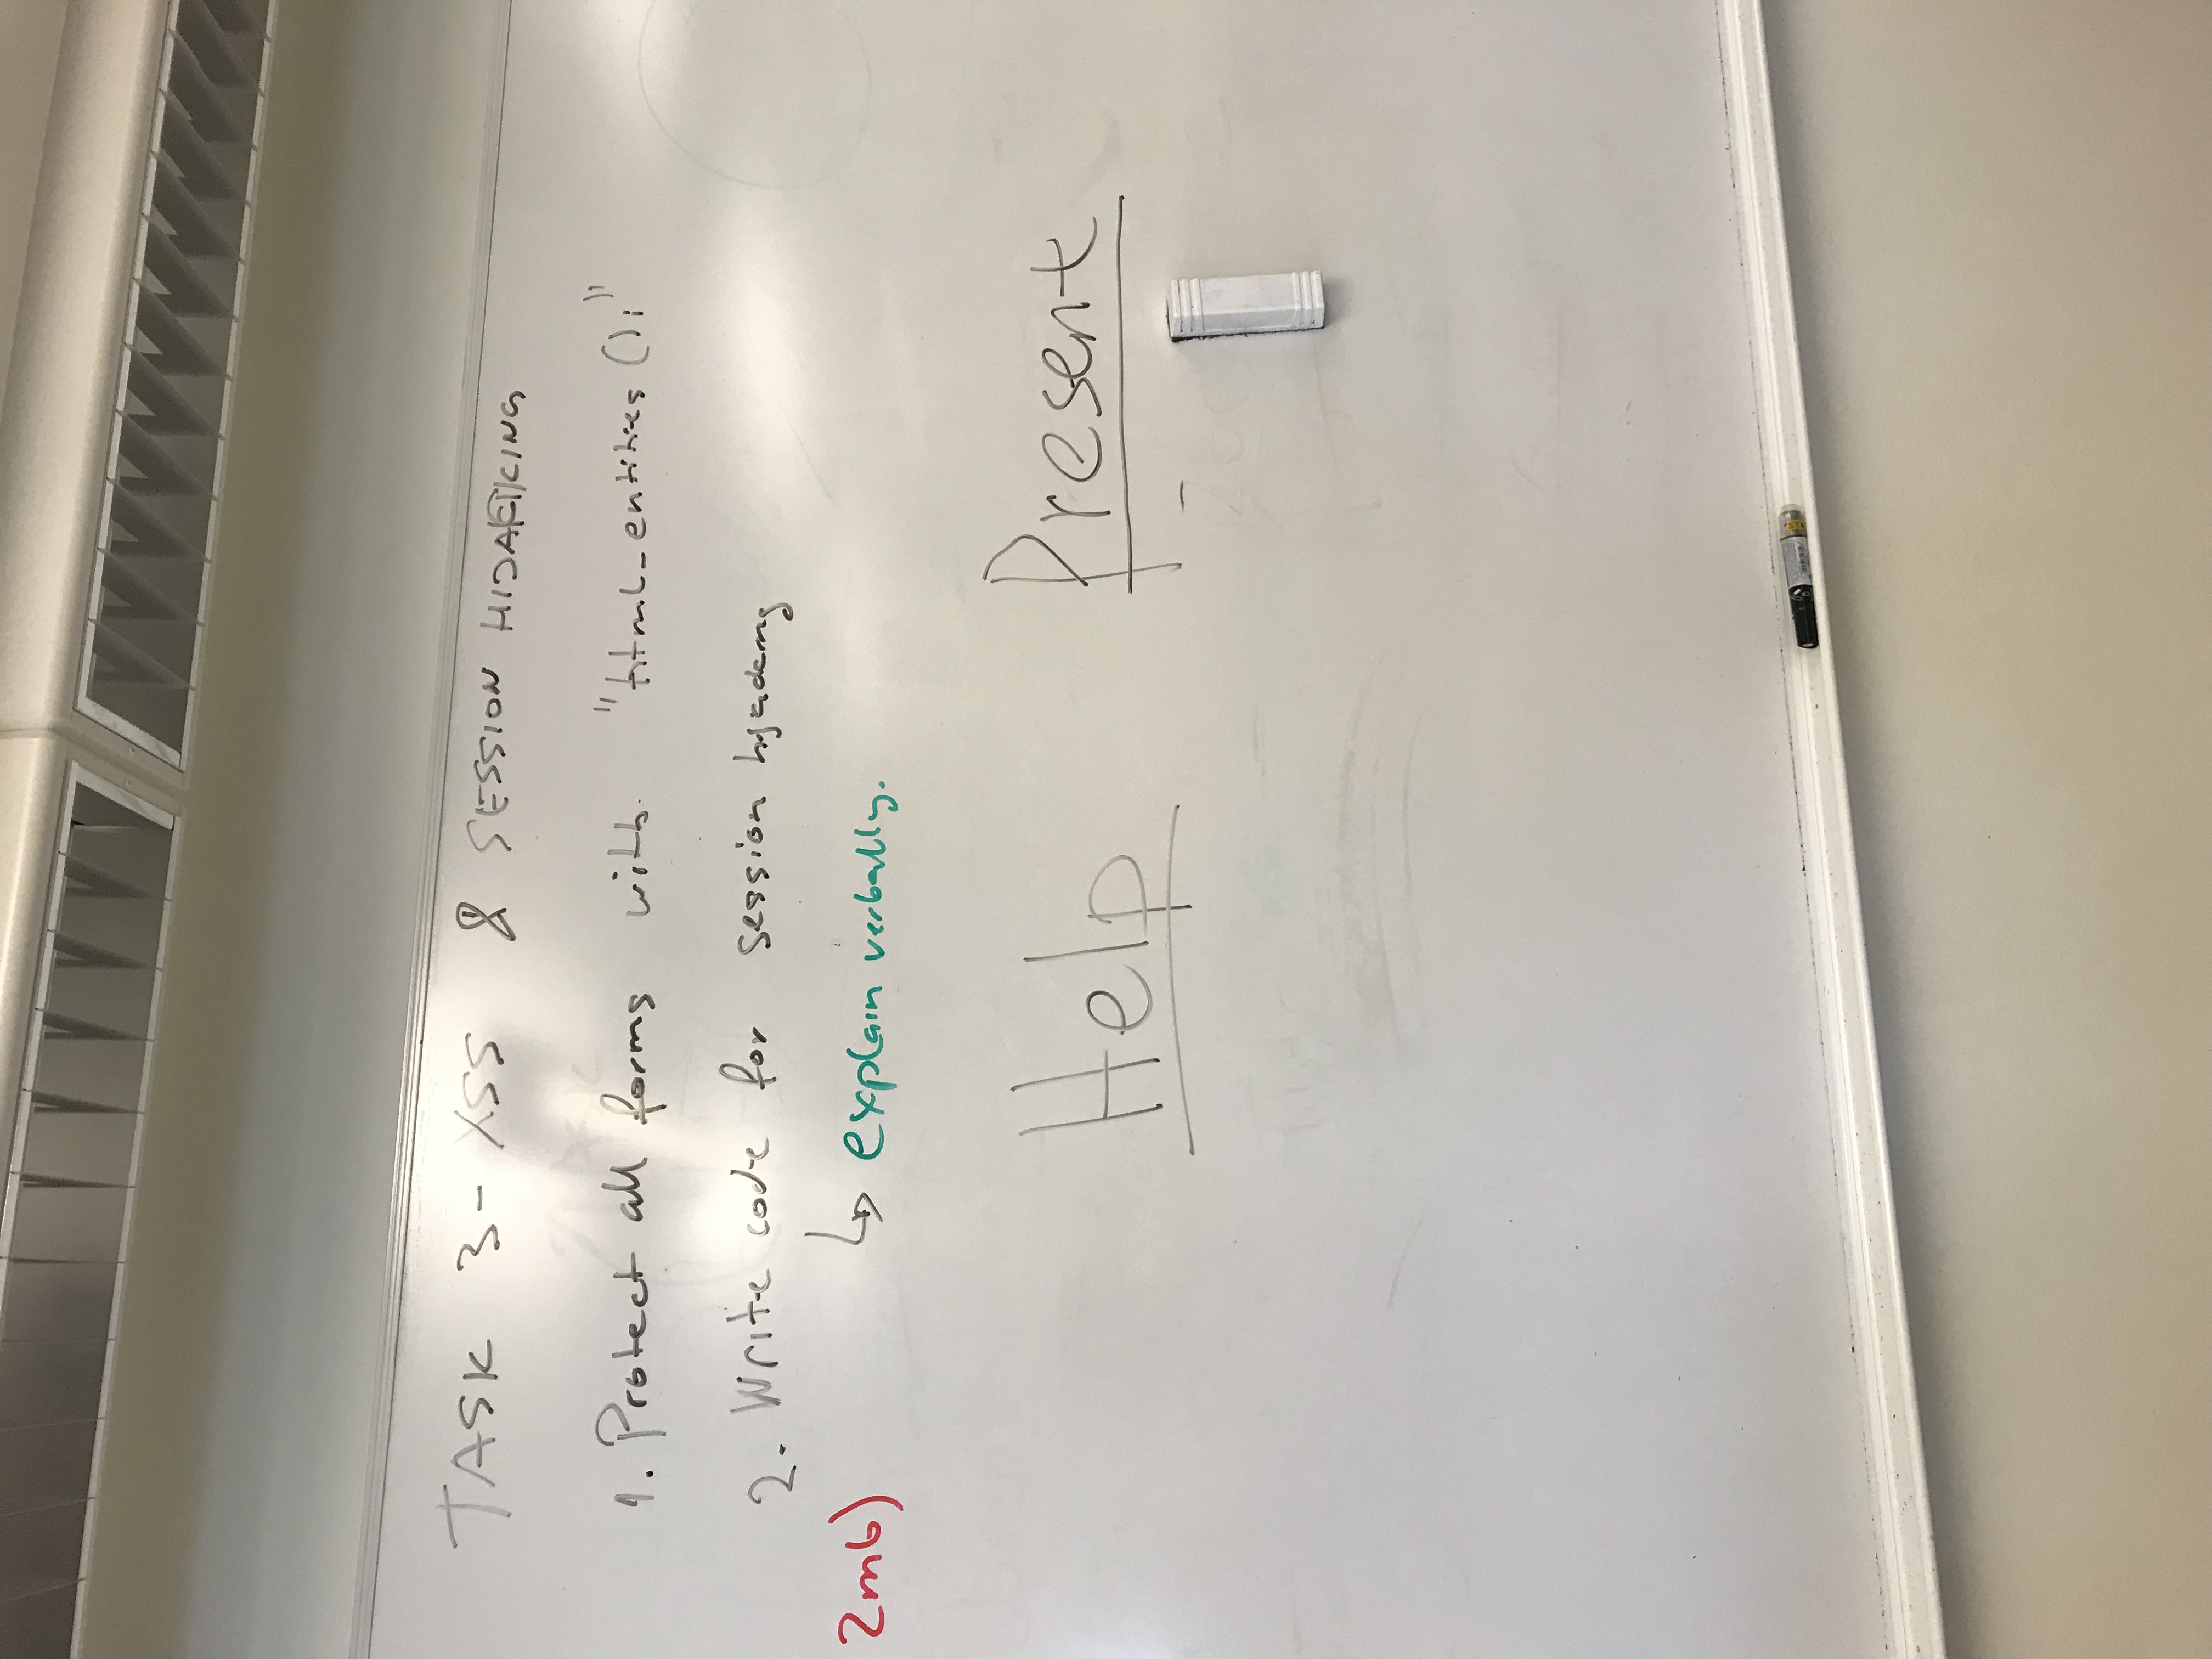 TASK 3 - XSS & SESSION HIJACKING
1. Protect all forms with "html_entities();"
2. Write code for session hijacking
2mb)
↳ explain verbally.
Help
Present